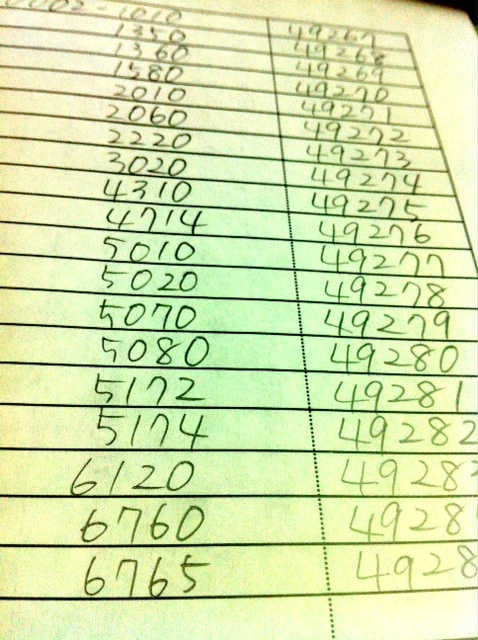 1010 49267
1350 49268
1360 49269
1580 49270
2010 49271
2060 49272
2220 49273
3020 49274
4310 49275
4714 49276
5010 49277
5020 49278
5070 49279
5080 49280
5172 49281
5174 49282
6120 4928
6760 4928
6765 4928